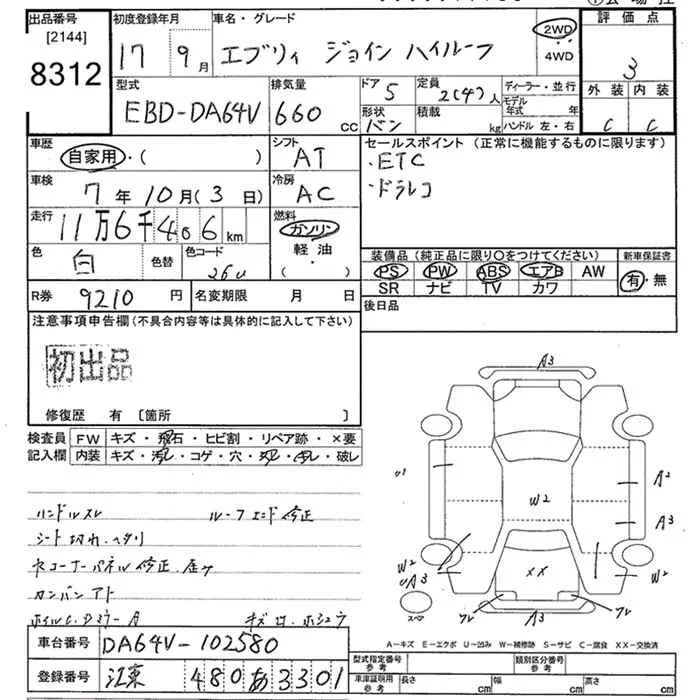 出品番号 初度登録年月 車名・グレード 評価点
[2144]
8312
17 9月 エブリィ ジョイン ハイルーフ 2WD・4WD 3
型式 排気量 ドア 5 定員 2(4)人 ディーラー・並行 外装 内装
EBD-DA64V 660cc 形状 バン 積載 kg モデル年式 年 ハンドル 左・右 C C
車歴 シフト セールスポイント(正常に機能するものに限ります)
自家用・( ) AT ・ETC
車検 冷房 ・ドラレコ
7年10月(3日) AC
走行 燃料
11万6千406km ガソリン・軽油・( )
色 白 色替 色コード 26U
装備品(純正品に限り○をつけてください) 新車保証書
PS PW ABS エアB AW 有・無
SR ナビ TV カワ
R券 9210円 名変期限 月 日 後日品
注意事項申告欄(不具合内容等は具体的に記入して下さい)
初出品
修復歴 有 [箇所 ]
検査員記入欄 FW キズ・飛石・ヒビ割・リペア跡・×要
内装 キズ・汚レ・コゲ・穴・破レ
ハンドルスレ ルーフエンド修正
シート切れ・ヘタリ
コーナーパネル修正
カンバンアト
A3
A2
A3
W2
W2
U3A3
XX
W2
スペア
A3
A-キズ E-エクボ U-凹み W-補修跡 S-サビ C-腐食 XX-交換済
車台番号 DA64V-102580
登録番号 江東 480 あ 3301
型式指定番号 参考 類別区分番号 参考
車庫証明用 参考 長さ cm 幅 cm 高さ cm